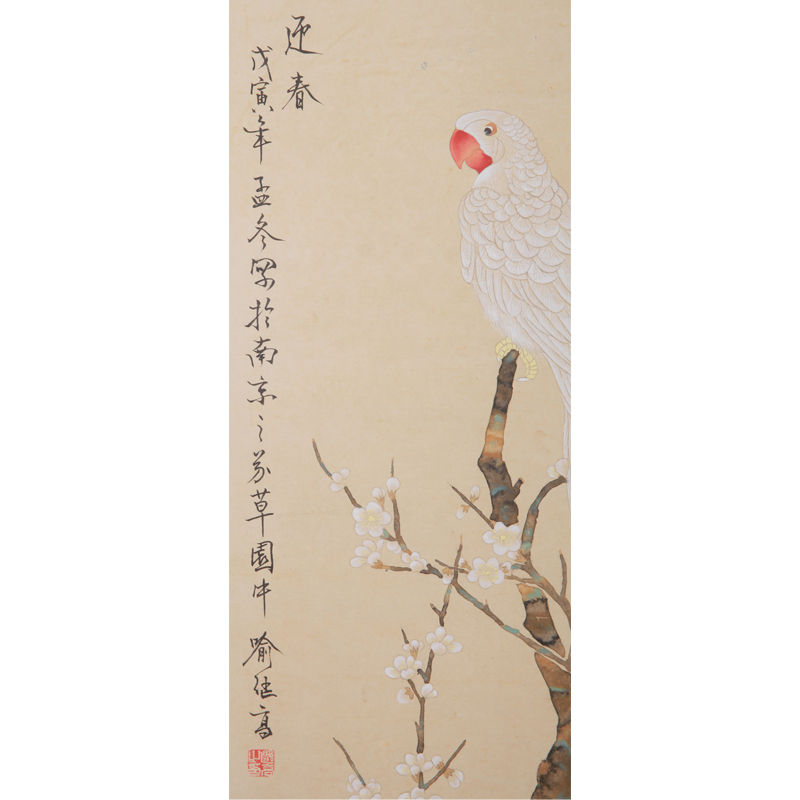 迎春
戊寅年孟冬写於南京之草園中 喻继高